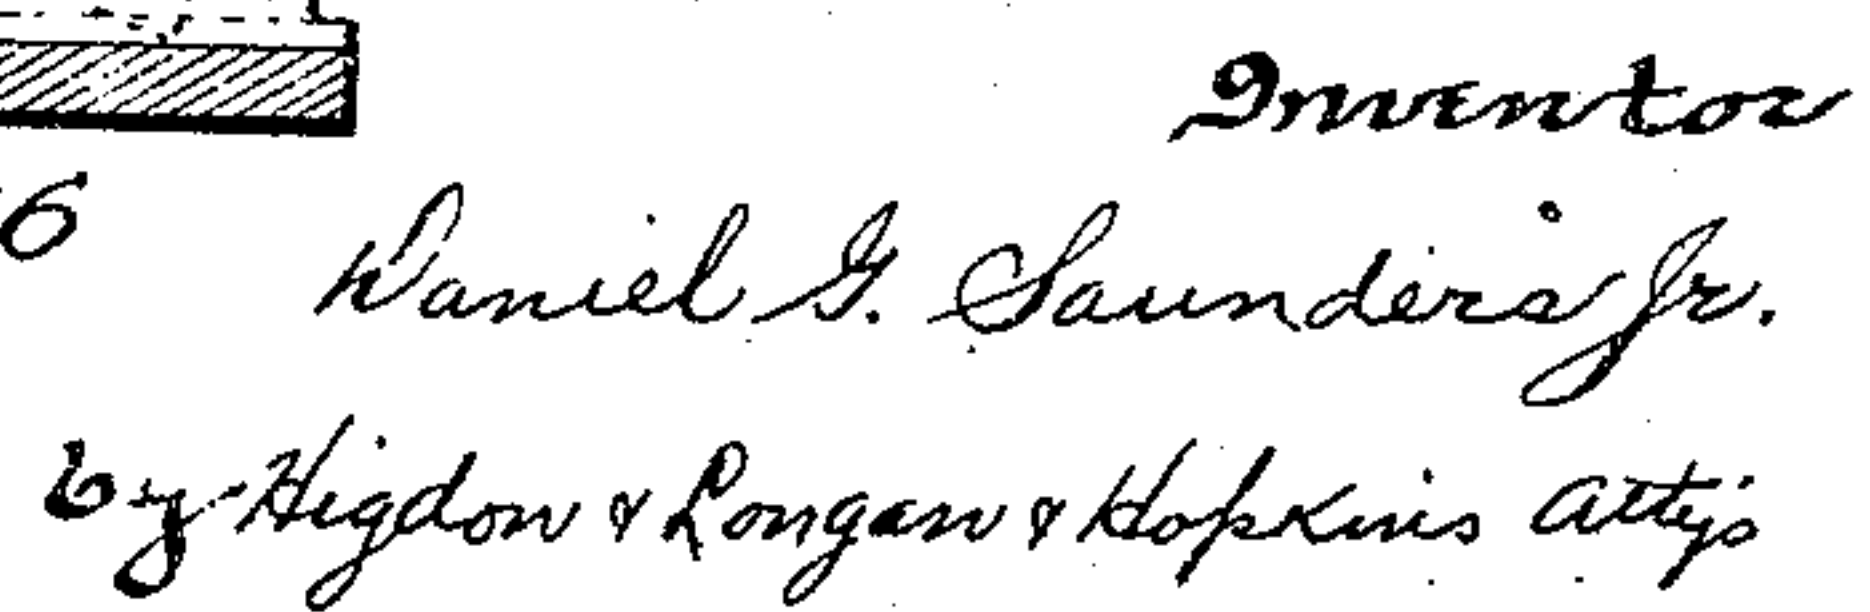 Inventor
6
Daniel G. Saunders Jr.
by Higdon & Longan & Hopkins Attys